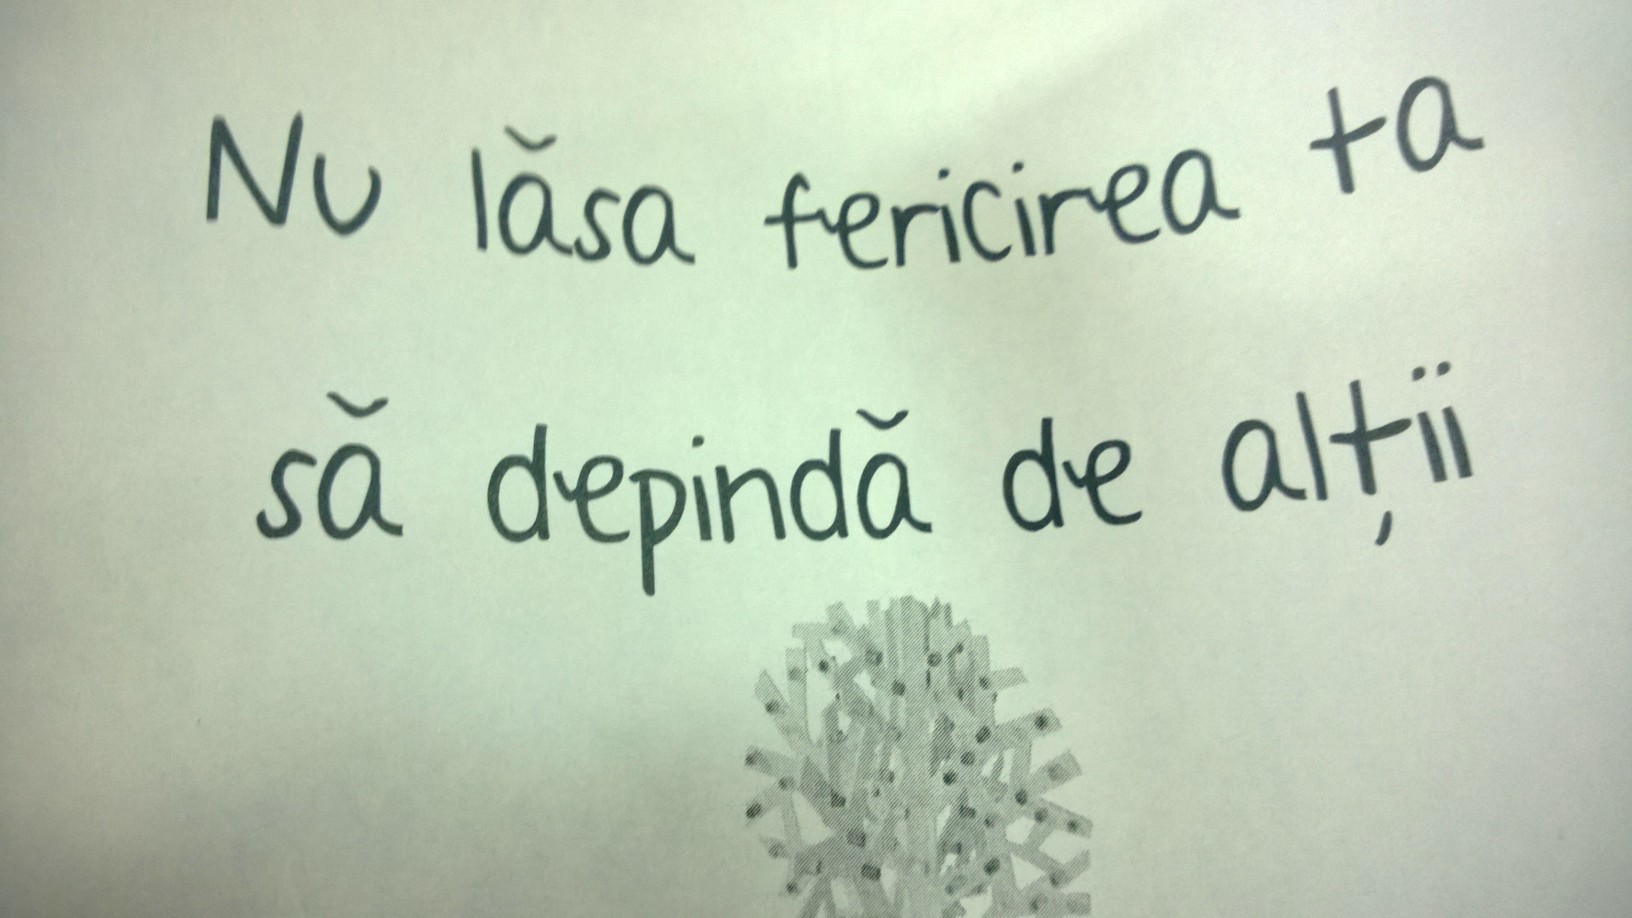 Nu lăsa fericirea ta
să depindă de alții